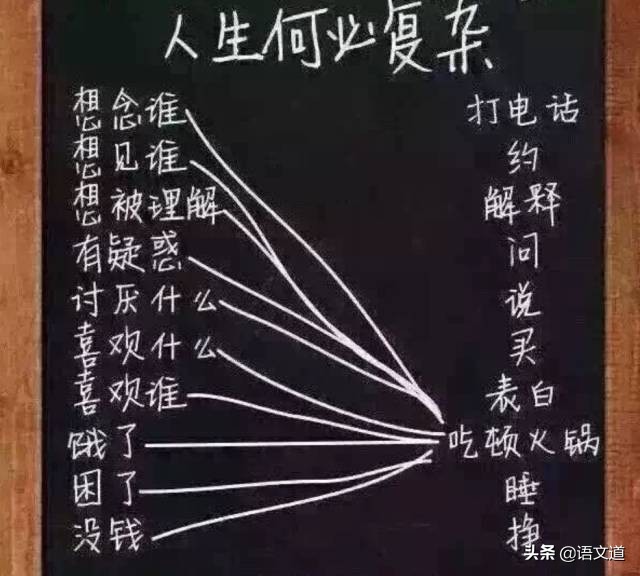 人生何必复杂
想念谁 打电话
想见谁 约
想被理解 解释
有疑惑 问
讨厌什么 说
喜欢什么 买
喜欢谁 表白
饿了 吃顿火锅
困了 睡
没钱 挣
头条 @语文道